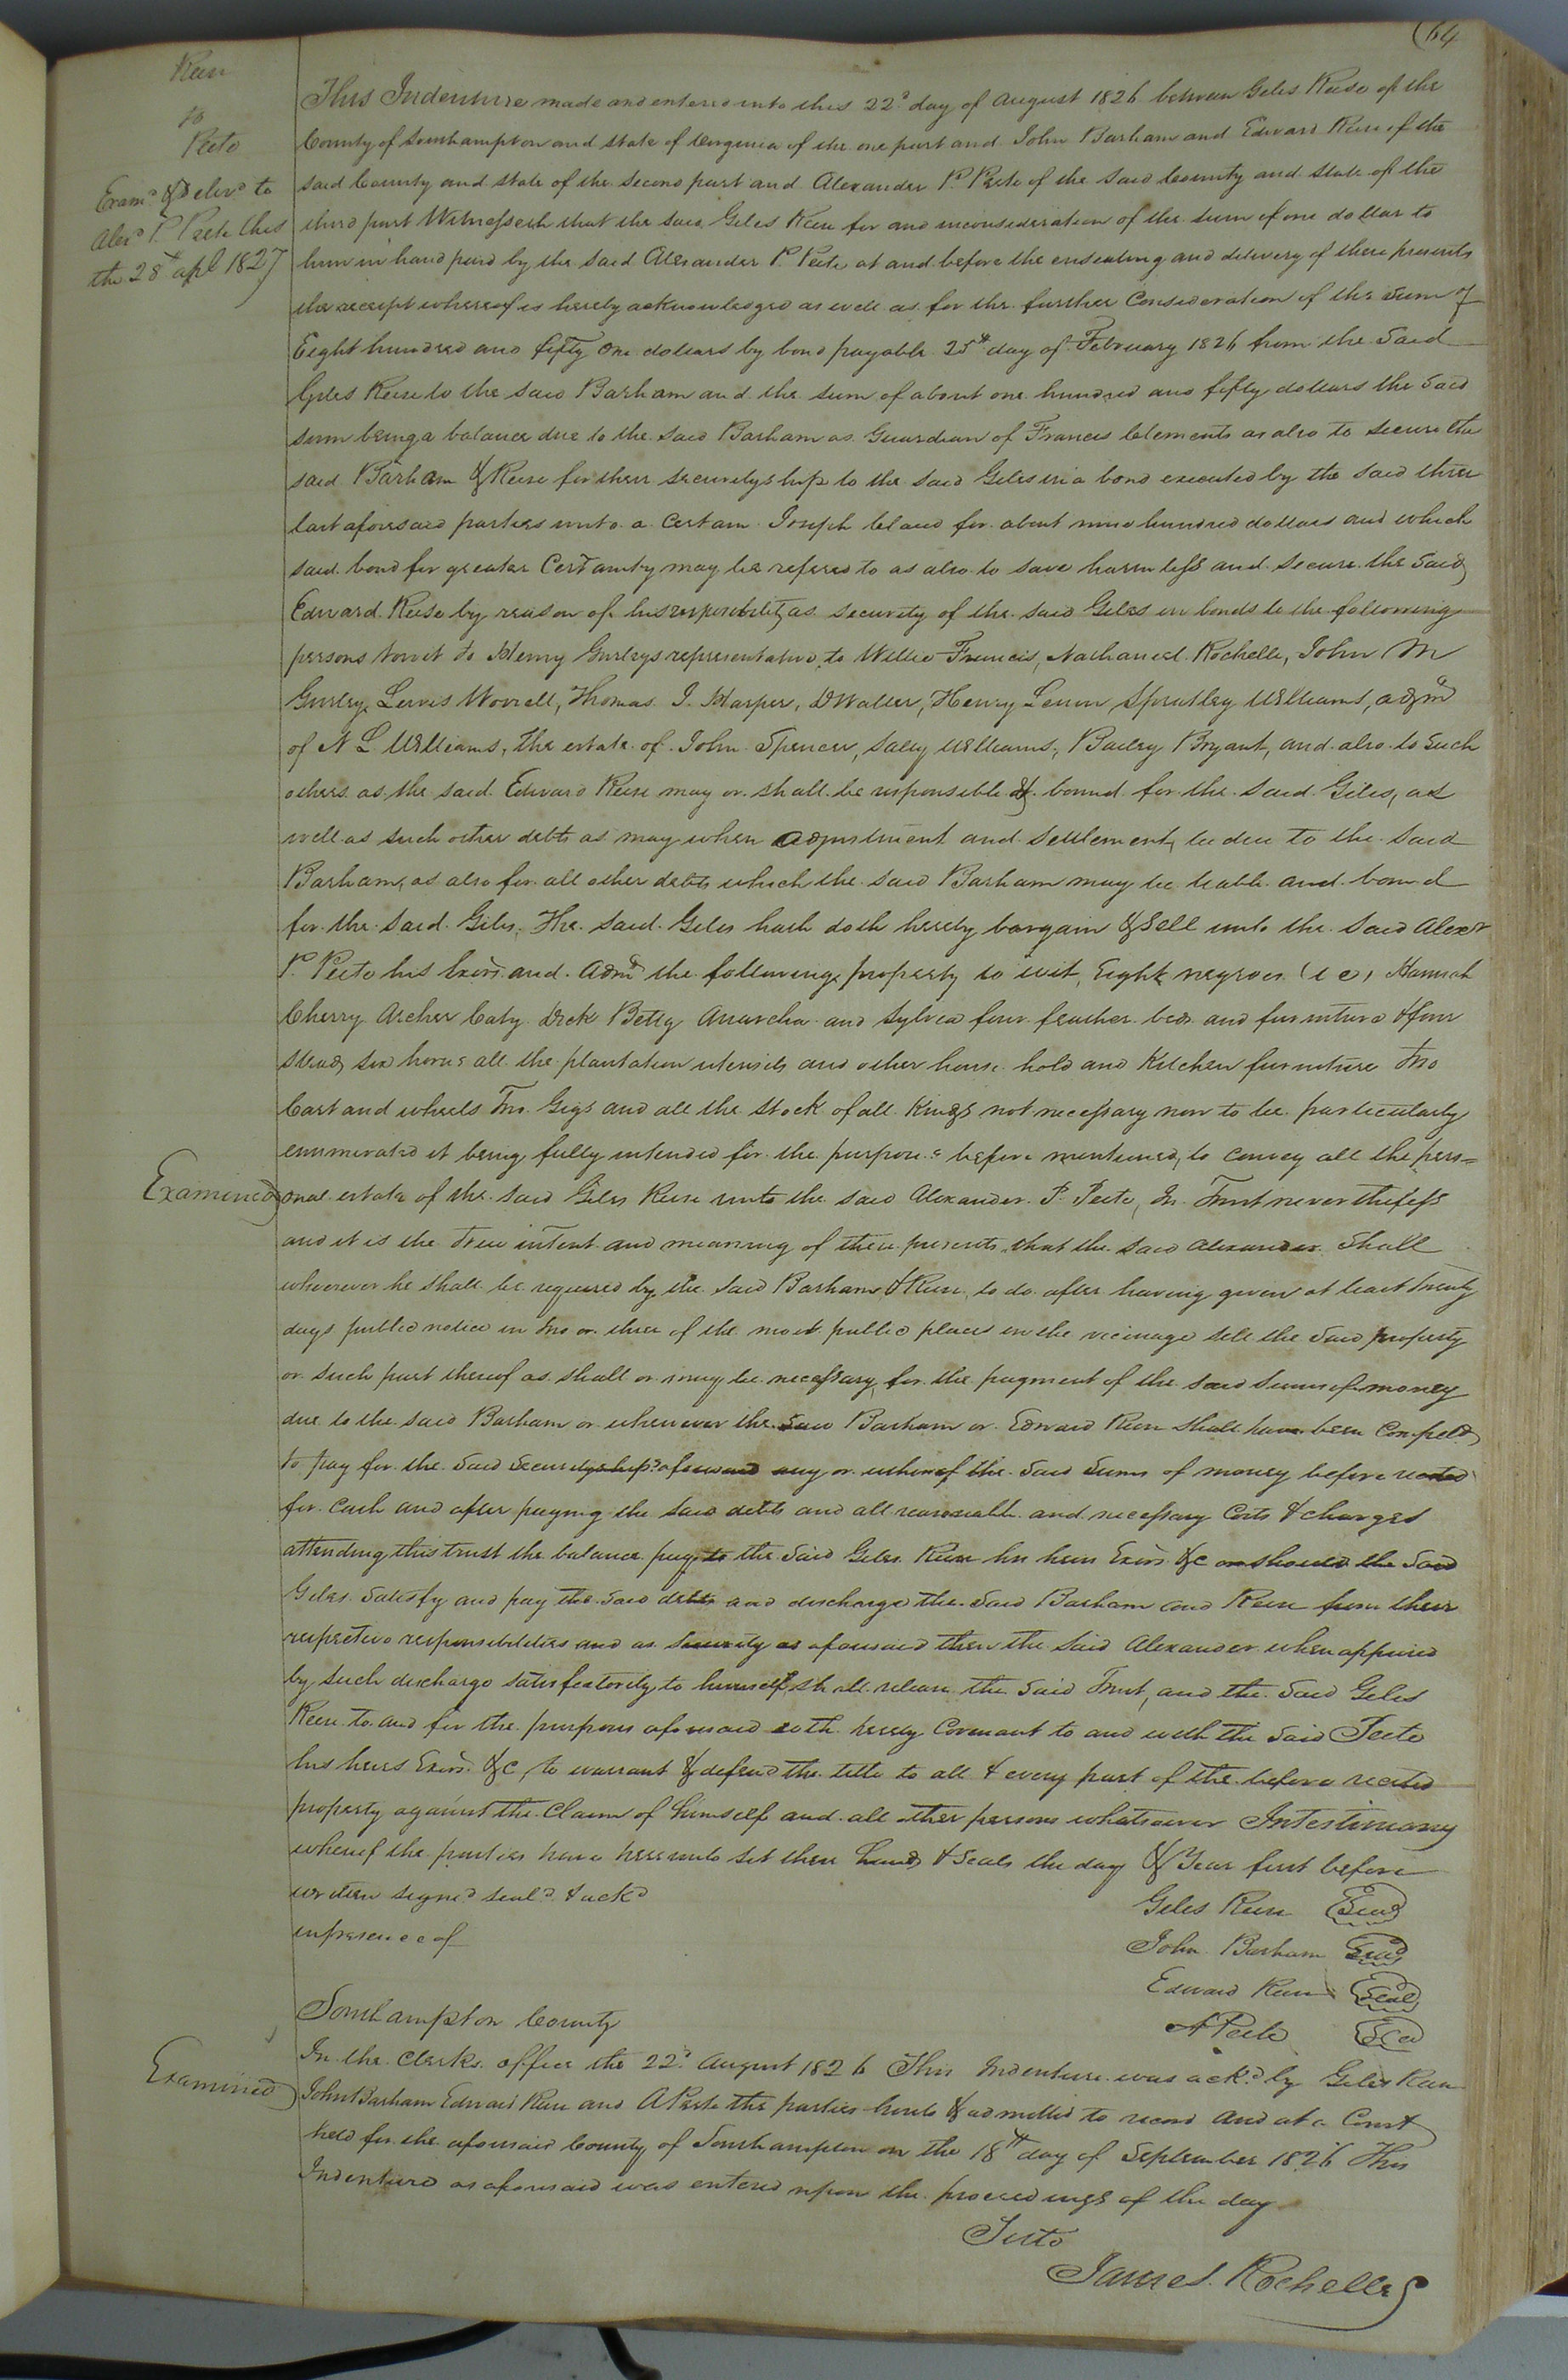 (64
Reese
to
Peete
Exam.d & deliv.d to
Alex.r P. Peete this
the 28th apl 1827
This Indenture made and entered into this 22.d day of August 1826 between Giles Reese of the
County of Southampton and state of Virginia of the one part and John Barham and Edward Reese of the
said County and state of the second part and Alexander P. Peete of the said County and state of the
third part Witnesseth that the said Giles Reese for and inconsideration of the sum of one dollar to
him in hand paid by the said Alexander P. Peete at and before the ensealing and delivery of these presents
the receipt whereof is hereby acknowledged as well as for the further Consideration of the sum of
Eight hundred and fifty One dollars by bond payable 25th day of February 1826 from the Said
Giles Reese to the said Barham and the sum of about one hundred and fifty dollars the said
sum being a balance due to the said Barham as Guardian of Frances Clements as also to secure the
said Barham & Reese for their securityship to the said Giles in a bond executed by the said three
last aforesaid parties unto a Certain Joseph Claud for about nine hundred dollars and which
said bond for greater Certainty may be refered to as also to save harmless and secure the said
Edward Reese by reason of his responsibility as security of the said Giles in bonds to the following
persons towit to Henry Gurleys representative, to Willie Francis, Nathaniel Rochelle, John M
Gurley, Lewis Worrell, Thomas J. Harper, D Waller, Henry Spratley Williams, adm.r
of N L Williams, the estate of John Spencer, Sally Williams, Bailey Bryant, and also to such
others as the said Edward Reese may or shall be responsible & bound for the said Giles, as
well as such other debts as may when adjustment and settlement, be due to the said
Barham, as also for all other debts which the said Barham may be liable and bound
for the said Giles. The said Giles hath doth hereby bargain & sell unto the said Alex.r
P. Peete his Exors. and Adm.r the following property to wit, Eight negroes (i e) Hannah
Cherry Archer Caty Dick Betty Anarcha and Sylvia four feather beds and furniture & four
steads six horses all the plantation utensils and other house hold and Kitchen furniture Two
Cart and wheels Two Gigs and all the Stock of all Kinds not necessary now to be particularly
enumerated it being fully intended for the purposes before mentioned, to convey all the pers=
Examined
onal estate of the said Giles Reese unto the said Alexander P. Peete, In Trust nevertheless
and it is the true intent and meaning of these presents, that the said Alexander Shall
whenever he shall be required by the said Barham & Reese, to do after having given at least twenty
days public notice in two or three of the most public places in the vicinage sell the said property
or such part thereof as shall or may be necessary for the payment of the said sums of money
due to the said Barham or whenever the said Barham or Edward Reese shall have been Compeld
to pay for the said securityships aforesaid any or either of the said sums of money before recited
for Cash and after paying the said debts and all reasonable and necessary Costs & charges
attending this trust the balance pay to the said Giles Reese his heirs Exors. &c or should the said
Giles Satisfy and pay the said debts and discharge the said Barham and Reese from their
respective responsibilities and as security as aforesaid then the said Alexander when apprised
by such discharge satisfactorily to himself shall release the said Trust, and the said Giles
Reese to and for the purposes aforesaid doth hereby Covenant to and with the said Peete
his heirs Exors. &c, to warrant & defend the title to all & every part of the before recited
property against the Claim of himself and all other persons whatsoever Intestimony
whereof the parties have hereunto set their hands & seals the day & Year first before
written signed seald & ackd
inpresence of
Giles Reese Seal
John Barham Seal
Edward Reese Seal
A Peete Seal
Southampton County
In the Clerks office the 22d August 1826 This Indenture was ackd by Giles Reese
Examined
John Barham Edward Reese and A Peete the parties hereto & admitted to record And at a Court
held for the aforesaid County of Southampton on the 18th day of September 1826 This
Indenture as aforesaid was entered upon the proceedings of the day
Teste
James Rochelle